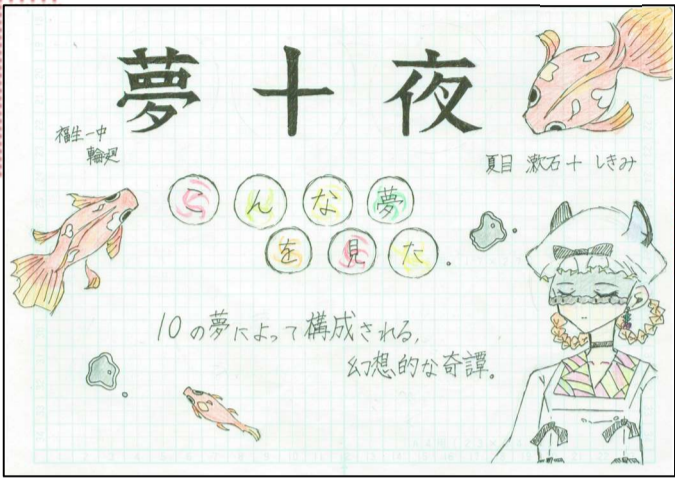 夢十夜
福生一中
輪廻
夏目 漱石 + しきみ
こんな夢
を見た。
10の夢によって構成される、
幻想的な奇譚。